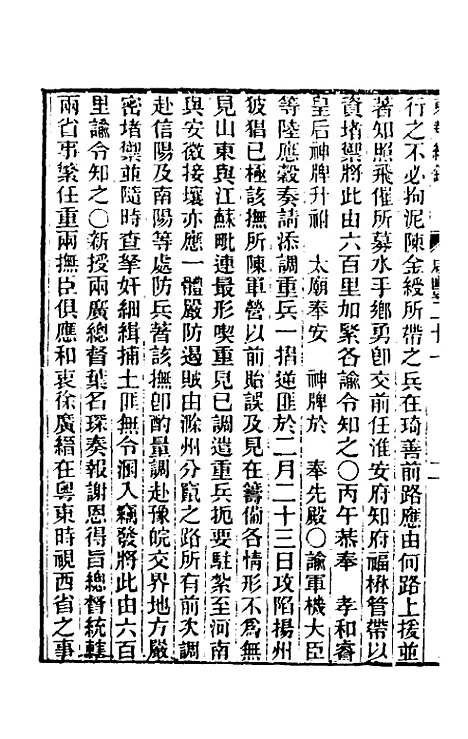 行之不必拘泥陳金綬所帶之兵在琦善前路應由何路上援並
著知照飛催所募水手鄉勇卽交前任淮安府知府福楙管帶以
資堵禦將此由六百里加緊各諭令知之〇丙午恭奉 孝和睿
皇后神牌升祔 太廟奉安 神牌於 奉先殿〇諭軍機大臣
等陸應穀奏請添調重兵一摺逆匪於二月二十三日攻陷揚州
披猖已極該撫所陳軍營以前貽誤及見在籌備各情形不爲無
見山東與江蘇毗連最形喫重見已調遣重兵扼要駐紮至河南
與安徽接壤亦應一體嚴防遏賊由滁州分竄之路所有前次調
赴信陽及南陽等處防兵著該撫卽酌量調赴豫皖交界地方嚴
密堵禦並隨時查拏奸細緝捕土匪無令溷入竊發將此由六百
里諭令知之〇新授兩廣總督葉名琛奏報謝恩得旨總督統轄
兩省事繁任重兩撫臣俱應和衷徐廣縉在粵東時視西省之事